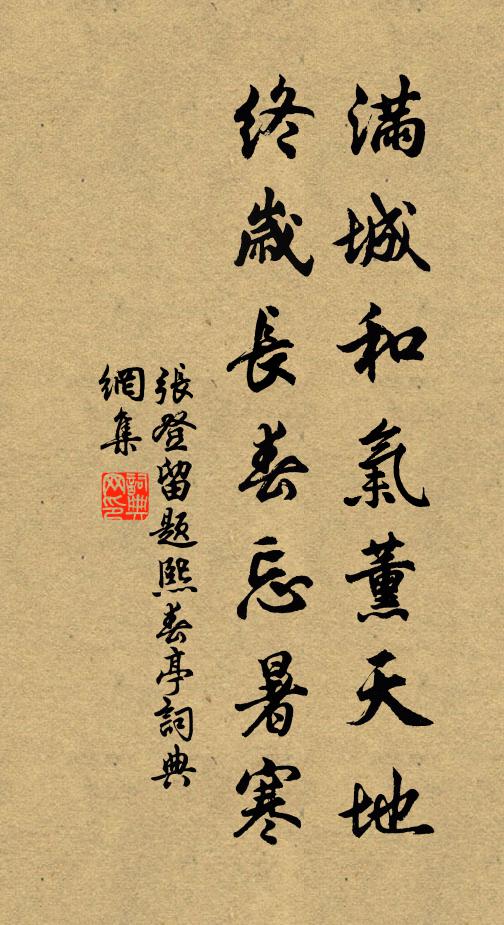 滿城和氣薰天地
終歲長春忘暑寒
張登留題熙春亭詞典
網集
詞典
网印